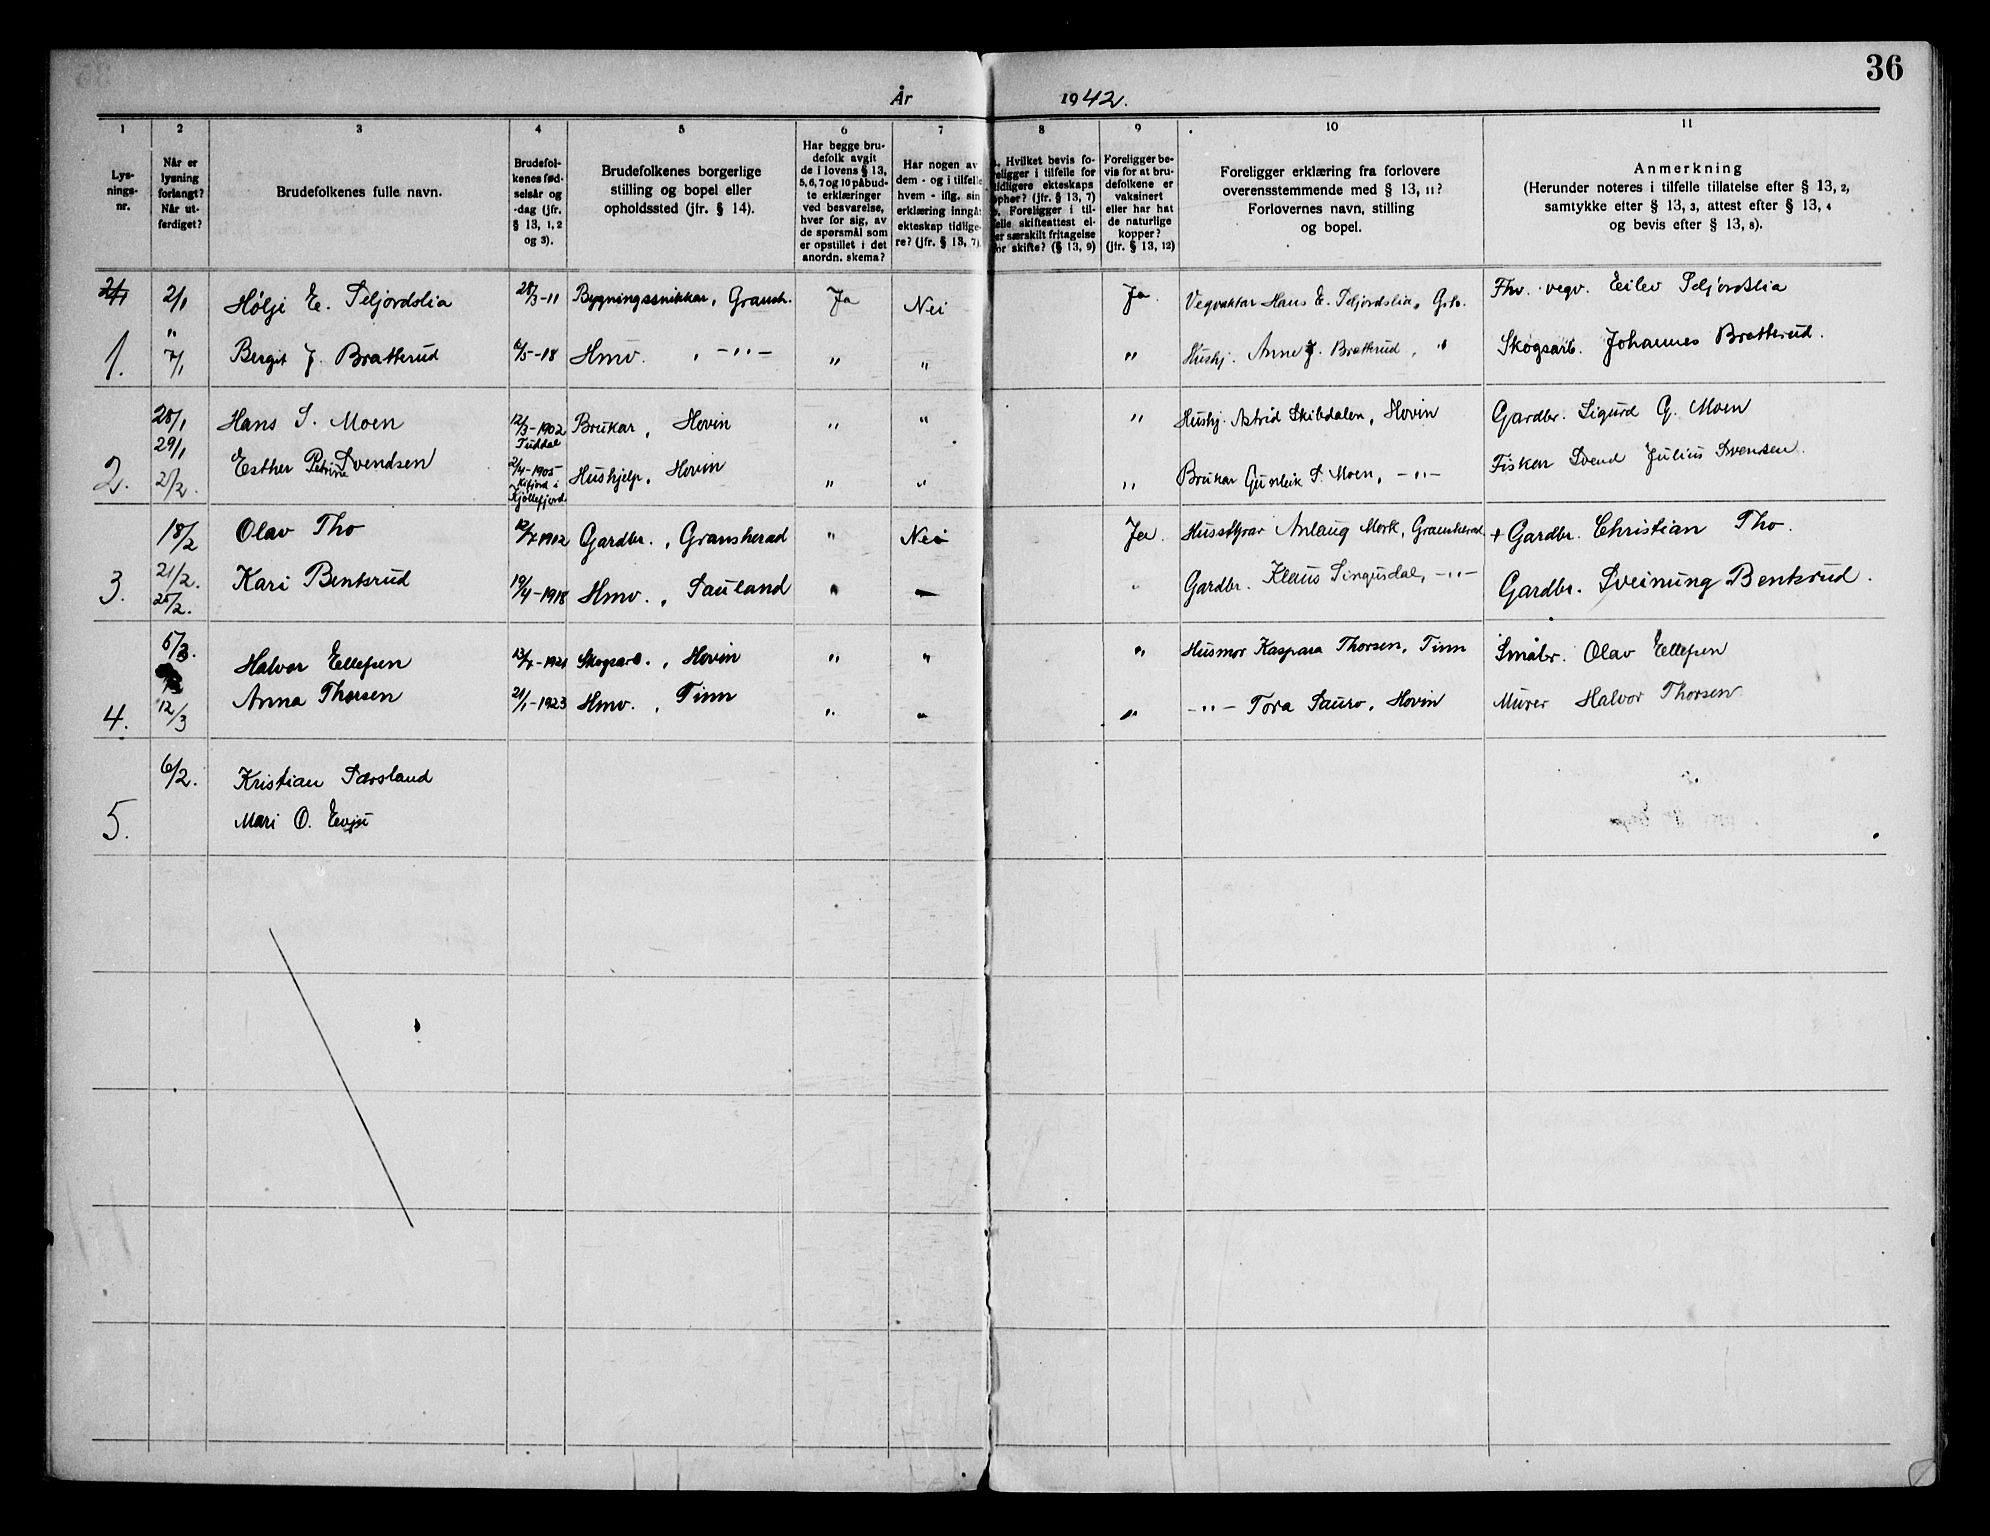 36
År 1942.
1 2 3 4 5 6 7 8 9 10 11
Lys-
nings-
nr.
Når er
lysning
forlangt?
Når ut-
ferdiget?
Brudefolkenes fulle navn.
Brudefol-
kenes fød-
selsår og
-dag (jfr.
§ 13, 1, 2
og 3).
Brudefolkenes borgerlige
stilling og bopel eller
opholdssted (jfr. § 14).
Har begge bru-
defolk avgit
de i lovens § 13,
5, 6, 7 og 10 påbud-
te erklæringer
ved besvarelse,
hver for sig, av
de spørsmål som
er opstillet i det
anordn. skema?
Har nogen av
dem - og i tilfelle
hvem - iflg. sin
erklæring inngåt
ekteskap tidlige-
re? (jfr. § 13, 7).
Hvilket bevis fo-
religger i tilfelle for
tidligere ekteskaps
ophør? (jfr. § 13, 7)
b. Foreligger i til-
felle skifteattest el-
ler særskilt fritagelse
for skifte? (§ 13, 9)
Foreligger be-
vis for at bru-
defolkene er
vaksinert
eller har hat
de naturlige
kopper?
(jfr. § 13, 12)
Foreligger erklæring fra forlovere
overensstemmende med § 13, 11?
Forlovernes navn, stilling
og bopel.
Anmerkning
(Herunder noteres i tilfelle tillatelse efter § 13, 2,
samtykke efter § 13, 3, attest efter § 13, 4
og bevis efter § 13, 8).
2/1 2/1 Hølje E. Seljordslia 28/3-11 Bygningssnikkar, Gransh. Ja Nei Ja. Vegvaktar Hans E. Seljordslia, Grh. Fhv. vegv. Eilev Seljordslia
"
1. 7/1 Bergit J. Bratterud 6/5-18 Hmv. , -"- " " " Hushj. Anne J. Bratterud, " Skogsarb. Johannes Bratterud.
28/1 Hans S. Moen 12/3-1902 Brukar, Hovin " " " Hushj. Astrid Skibdalen, Hovin Gardbr. Sigurd G. Moen
Tuddal
29/1
2. 2/2. Esther Petrine Svendsen 2/4-1905 Hushjelp, Hovin " " " Brukar Gunleik S. Moen, -"- Fisker Svend Julius Svendsen.
Kifjord i
Kjøllefjord.
18/2 Olav Tho 12/7 1912 Gardbr., Gransherad " Nei Ja. Husstyrar Anlaug Mork, Gransherad + Gardbr. Christian Tho.
21/2.
3. 25/2. Kari Benkrud 19/4-1918 Hmv., Sauland " " " Gardbr. Klaus Lingusdal, -"- Gardbr. Sveinung Benkrud.
5/3. Halvor Ellefsen 1921 Skogsarb., Hovin " " " Husmor Kaspara Thorsen, Tinn Småbr. Olav Ellefsen
4. 12/3 Anna Thorsen 21/1-1923 Hmv. , Tinn " " " -"- Tora Sauro, Hovin Murer Halvor Thorsen
6/2. Kristian Særsland
5. Mari O. Evju